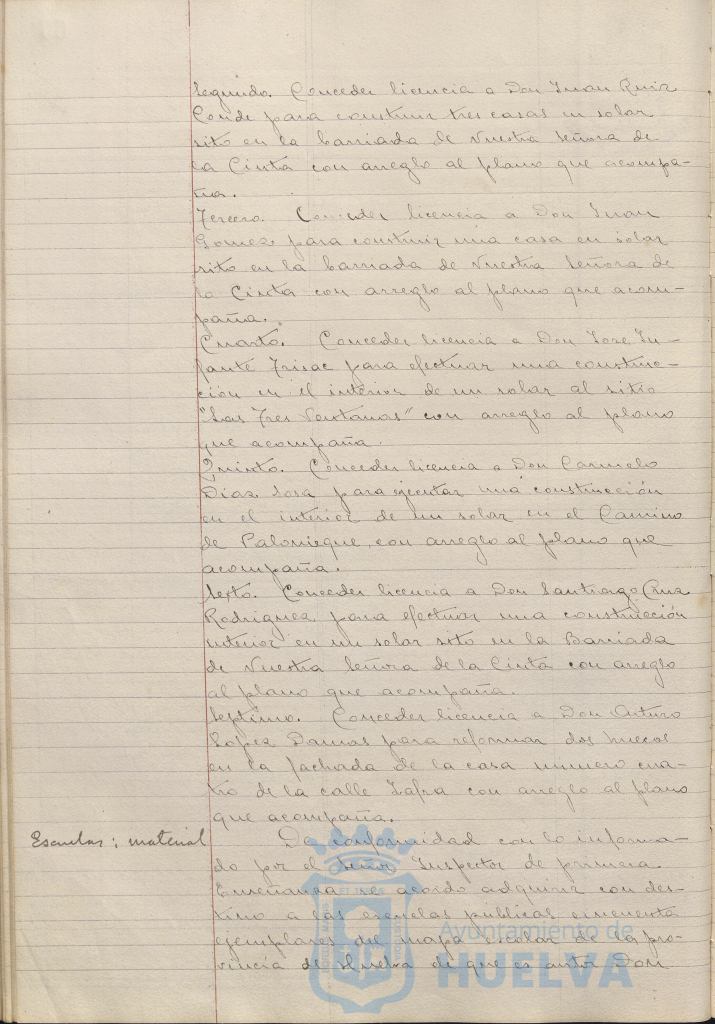 Segundo. Conceder licencia a Don Juan Ruiz
Conde para construir tres casas en solar
sito en la barriada de Nuestra Señora de
la Cinta con arreglo al plano que acompa-
ña.
Tercero. Conceder licencia a Don Juan
Gomez para construir una casa en solar
sito en la barriada de Nuestra Señora de
la Cinta con arreglo al plano que acom-
paña.
Cuarto. Conceder licencia a Don Jose In-
fante para efectuar una construc-
ción en el interior de un solar al sitio
"Las Tres Ventanas" con arreglo al plano
que acompaña.
Quinto. Conceder licencia a Don Carmelo
Diaz Sosa para ejecutar una construcción
en el interior de un solar en el Camino
de con arreglo al plano que
acompaña.
Sexto. Conceder licencia a Don Santiago Cruz
Rodriguez para efectuar una construcción
interior en un solar sito en la Barriada
de Nuestra Señora de la Cinta con arreglo
al plano que acompaña.
Septimo. Conceder licencia a Don Arturo
Lopez Damas para reformar dos huecos
en la fachada de la casa numero cua-
tro de la calle Zafra con arreglo al plano
que acompaña.
Escuelas: material
De conformidad con lo informa-
do por el Señor Inspector de primera
Enseñanza se acordó adquirir con des-
tino a las escuelas publicas cincuenta
ejemplares del mapa escolar de la pro-
vincia de Huelva de que es autor Don
Ayuntamiento de
HUELVA